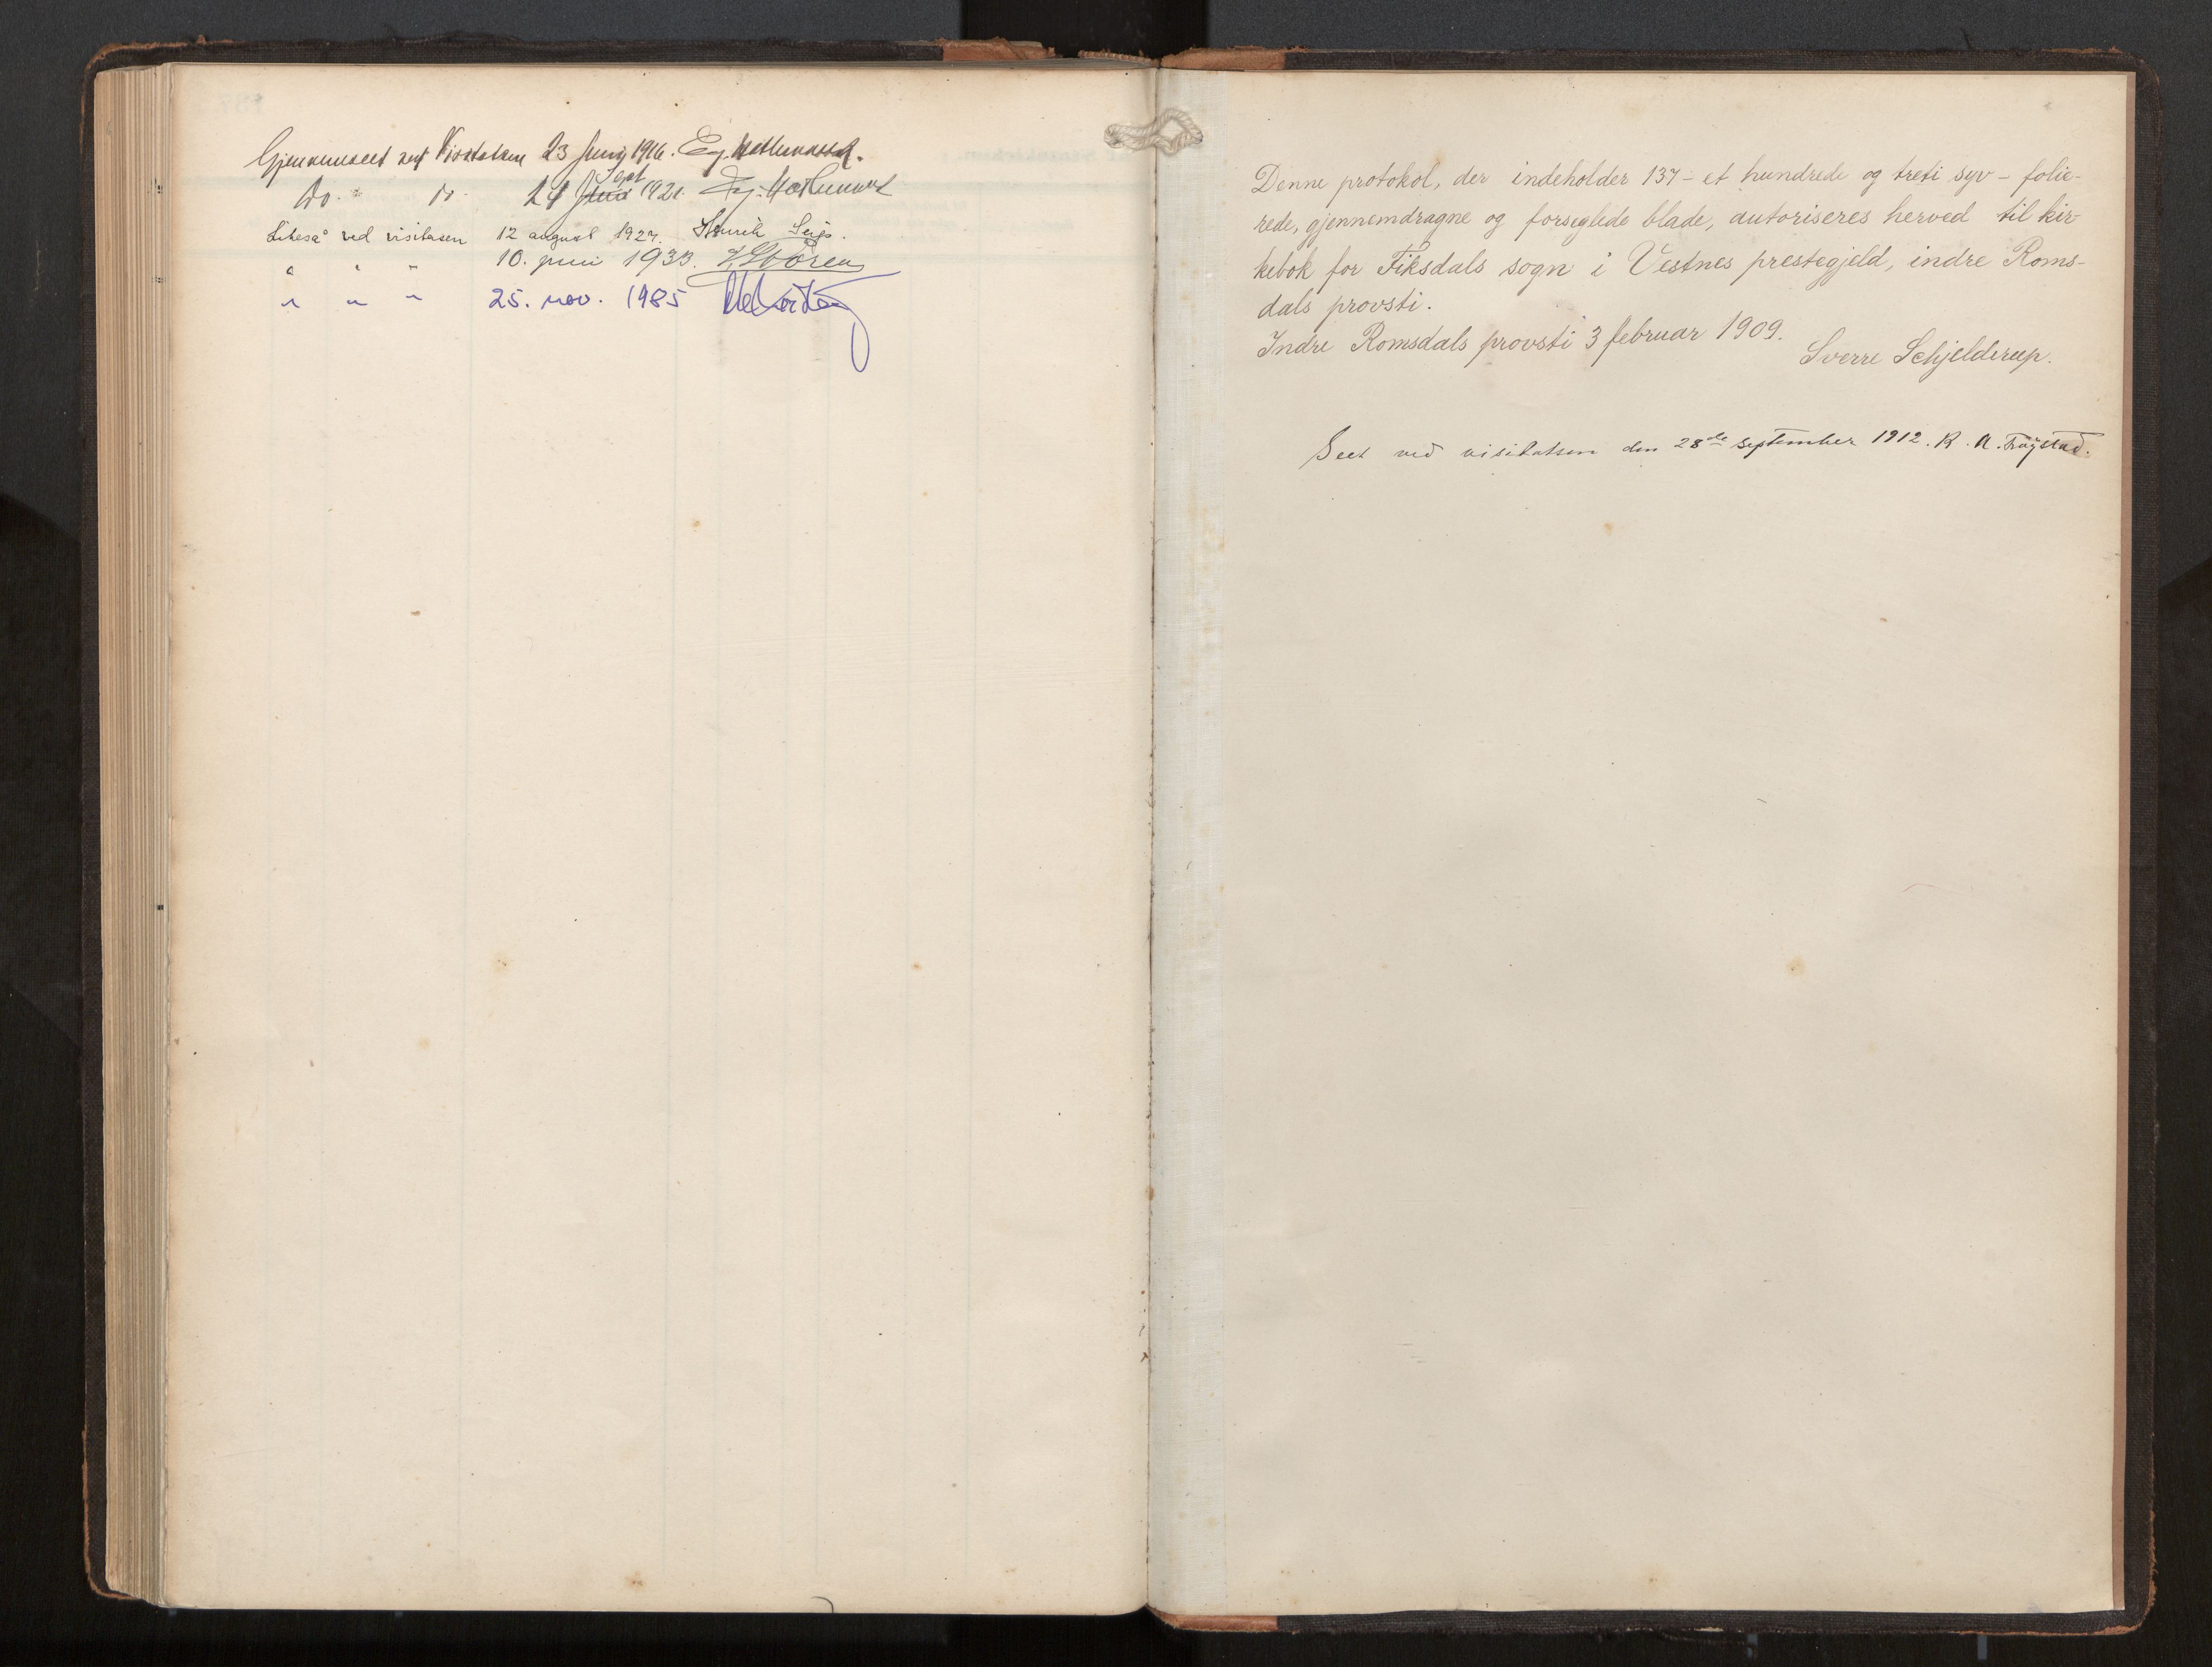 Gjennemseet ved Visitatsen 23 Juni 1916. Ey. Hothunnsvd.
Do. Do. 24 Sept 1921. Ey. Hothunnsvd
Likeså ved visitasen 12 august 1927. Henrik Seip.
" " " 10. juni 1933. Støren
" " " 25. nov. 1985
Denne protokol, der indeholder 137 - et hundrede og treti syv - folie-
rede, gjennemdragne og forseglede blade, autoriseres herved til kir-
kebok for Fiksdals sogn i Vestnes prestegjeld, indre Roms-
dals provsti.
Indre Romsdals provsti 3 februar 1909.
Sverre Schjelderup.
Seet ved visitatsen den 28de september 1912. K. N. Frøystad.